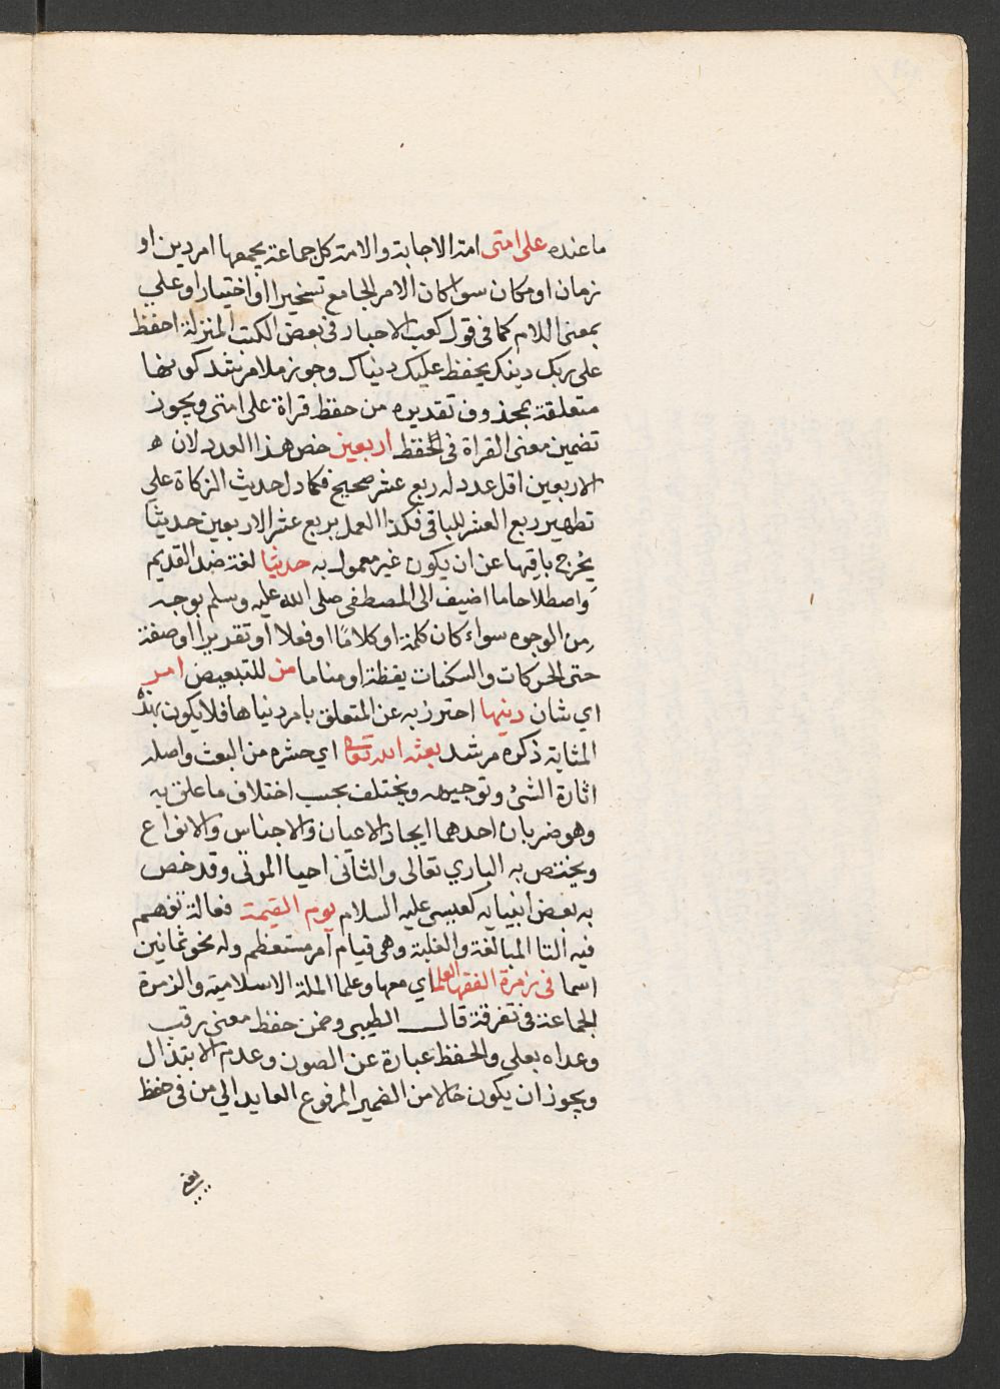 ما عنده على امتى امة الاجابة والامة كل جماعة يجمعها امر دين او
زمان او مكان سوا كان الامر الجامع تسخيرا او اختيارا وعلي
بمعنى اللام كما في قول كعب الاحبار في بعض الكتب المنزلة احفظ
على ربك دينك يحفظ عليك دنياك وجوز ملا مرشد كونها
متعلقة بمحذوف تقديره من حفظ قراة على امتى ويجوز
تضمين معنى القراة في الحفظ اربعين خص هذا العدد لان ه
الاربعين اقل عدد له ربع عشر صحيح فكما دل حديث الزكاة علي
تطهير ربع العشر للباقي فكذا العمل بربع عشر الاربعين حديثا
يخرج باقيها عن ان يكون غير معمول به حديثا لغة ضد القديم
واصطلاحا ما اضيف الى المصطفى صلى الله عليه وسلم بوجه
من الوجوه سواء كان كلمة او كلاما او فعلا او تقديرا او صفة
حتى الحركات والسكنات يقظة او مناما من للتبعيض امر
اي شان دينها احترز به عن المتعلق بامر دنياها فلا يكون بهذه
المثابة ذكره مرشد بعثه الله تعالى اي حشره من البعث واصله
اثارة الشئ وتوجيهه ويختلف بحسب اختلاف ما علق به
وهو ضربان احدهما ايجاد الاعيان والاجناس والانواع
ويختص به الباري تعالى والثاني احيا الموتى وقد خص
به بعض انبيايه كعيسى عليه السلام يوم القيمة فعالة تفهم
فيه التا المبالغة والغلبة وهي قيام امر مستعظم وله نحو ثمانين
اسما في زمرة الفقها العلما اي معها وعلما الملة الاسلامية والزمرة
الجماعة في تفرقة قال الطيبي وضمن حفظ معنى رقب
وعداه بعلي والحفظ عبارة عن الصون وعدم الابتذال
ويجوز ان يكون حالا من الضمير المرفوع العايد الي من في حفظ